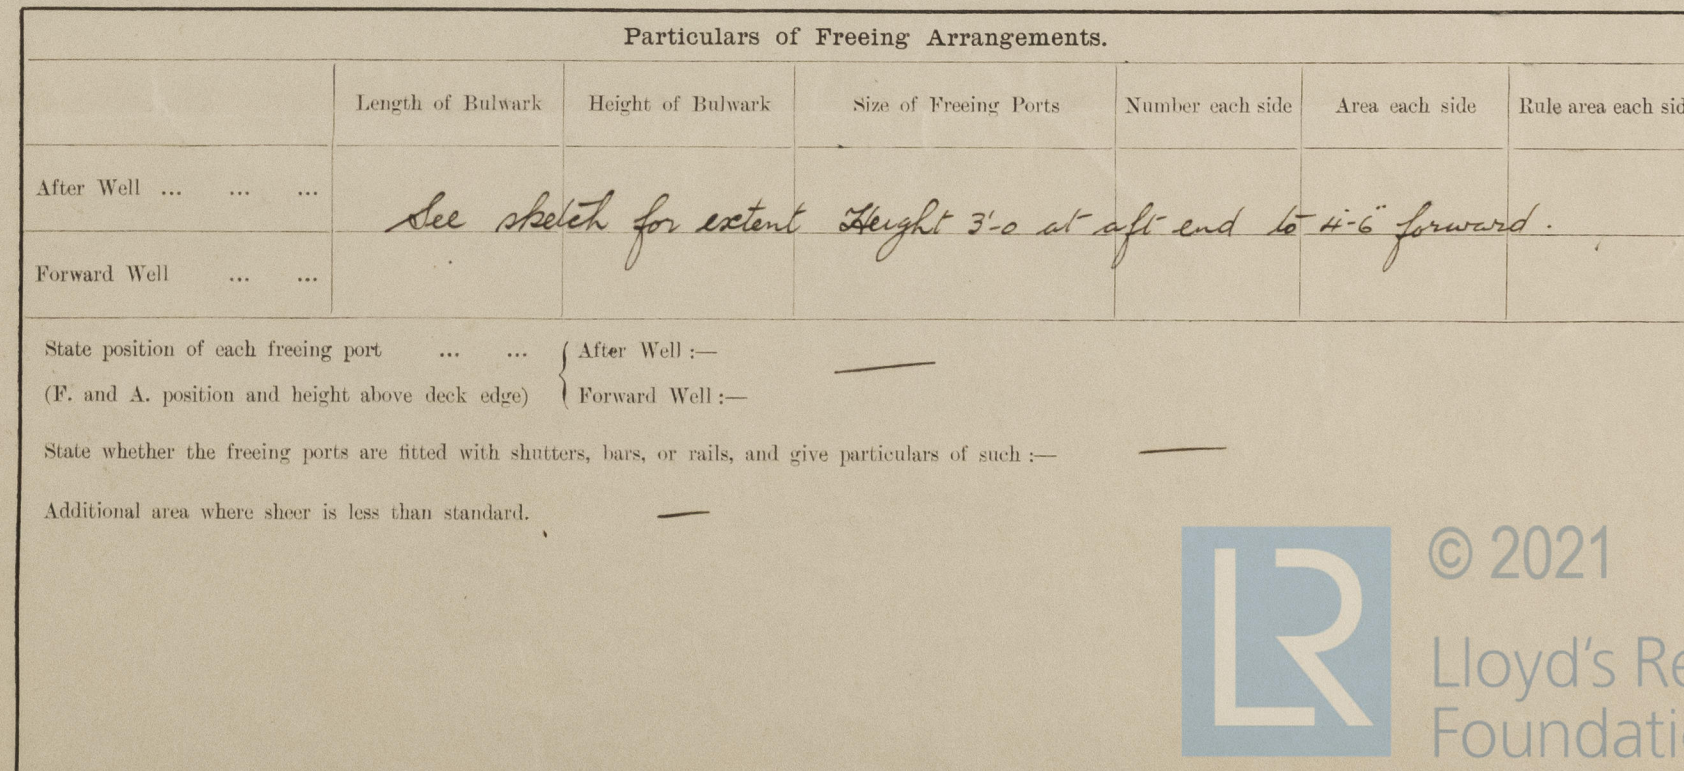 Particulars of Freeing Arrangements.
Length of Bulwark Height of Bulwark Size of Freeing Ports Number each side Area each side Rule area each sid
After Well ... ... ...
See sketch for extent Height 3'-0 at aft end to 4'-6" forward.
Forward Well ... ...
State position of each freeing port ... ... { After Well :—
(F. and A. position and height above deck edge) Forward Well :—
State whether the freeing ports are fitted with shutters, bars, or rails, and give particulars of such :— —
Additional area where sheer is less than standard. —
LR
© 2021
Lloyd's Re
Foundati